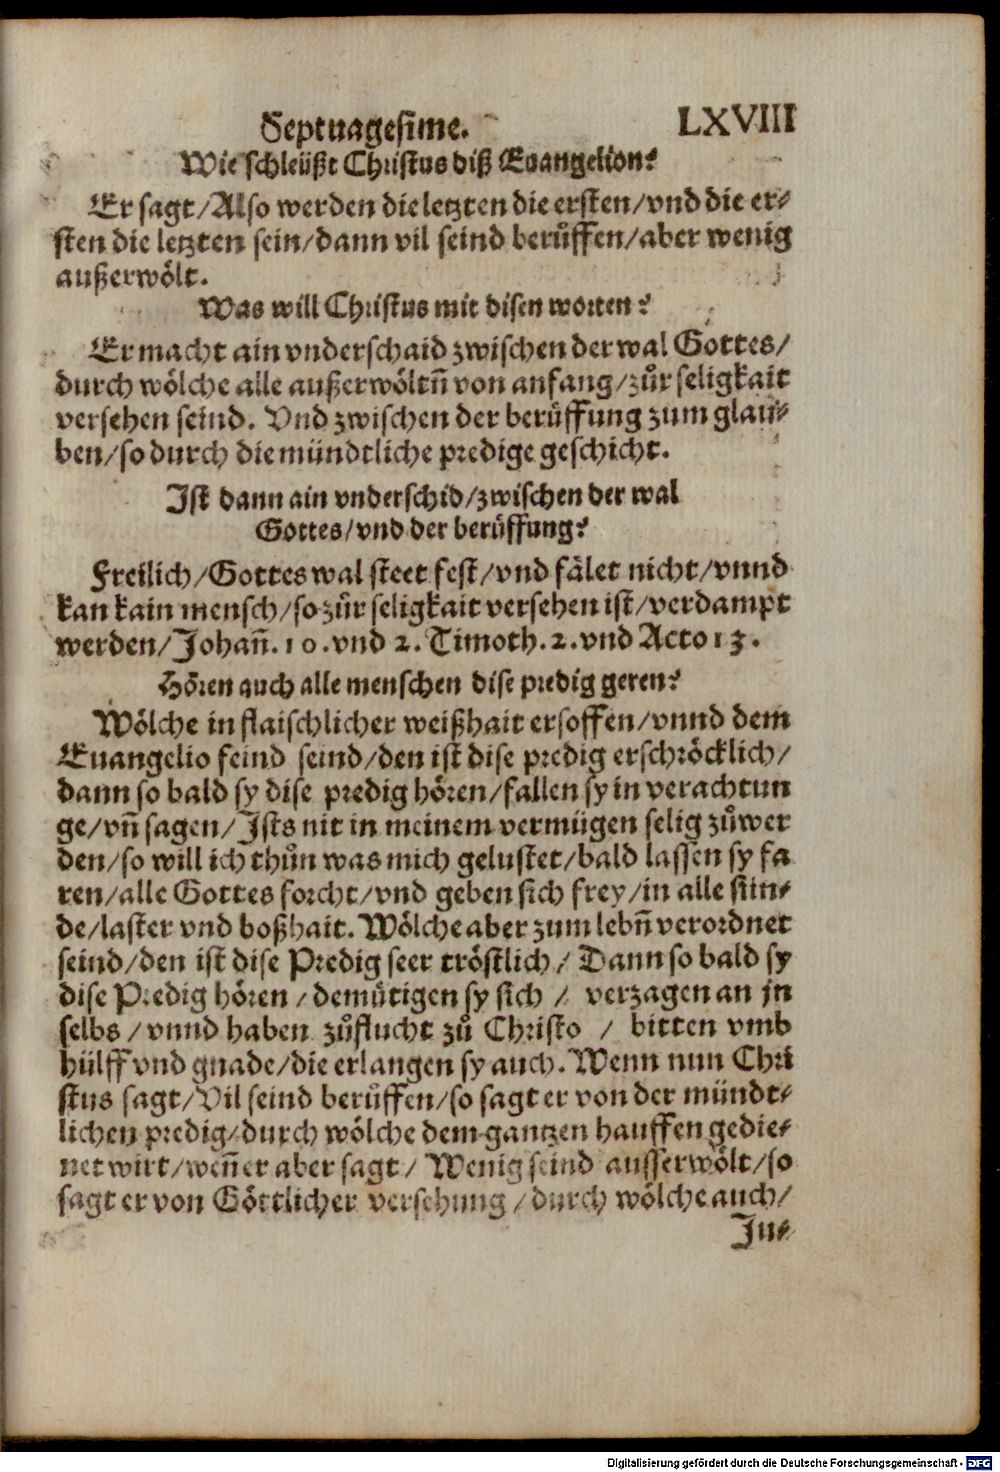 Septuagesime. LXVIII
Wie schleüßt Christus diß Euangelion?
Er sagt/Also werden die letzten die ersten/vnd die er-
sten die letzten sein/dann vil seind berůffen/aber wenig
außerwölt.
Was will Christus mit disen worten?
Er macht ain vnderschaid zwischen der wal Gottes/
durch wölche alle außerwöltñ von anfang/zůr seligkait
versehen seind. Vnd zwischen der berůffung zum glau-
ben/so durch die mündtliche predige geschicht.
Ist dann ain vnderschid/zwischen der wal
Gottes/vnd der berůffung?
Freilich/Gottes wal steet fest/vnd fälet nicht/vnnd
kan kain mensch/so zůr seligkait versehen ist/verdampt
werden/Johañ.10.vnd 2.Timoth.2.vnd Acto 13.
Hören auch alle menschen dise predig geren?
Wölche in flaischlicher weißhait ersoffen/vnnd dem
Euangelio feind seind/den ist dise predig erschröcklich/
dann so bald sy dise predig hören/fallen sy in verachtun
ge/vñ sagen/Ists nit in meinem vermügen selig zůwer
den/so will ich thůn was mich gelustet/bald lassen sy fa
ren/alle Gottes forcht/vnd geben sich frey/in alle sün-
de/laster vnd boßhait. Wölche aber zum lebñ verordnet
seind/den ist dise Predig seer tröstlich/ Dann so bald sy
dise Predig hören/demütigen sy sich/ verzagen an jn
selbs/vnnd haben zůflucht zů Christo / bitten vmb
hülff vnd gnade/die erlangen sy auch. Wenn nun Chri
stus sagt/Vil seind berůffen/so sagt er von der mündt-
lichen predig/durch wölche dem gantzen hauffen gedie-
net wirt/weñ er aber sagt/ Wenig seind ausserwölt/so
sagt er von Göttlicher versehung/durch wölche auch/
Jn-
Digitalisierung gefördert durch die Deutsche Forschungsgemeinschaft - DFG